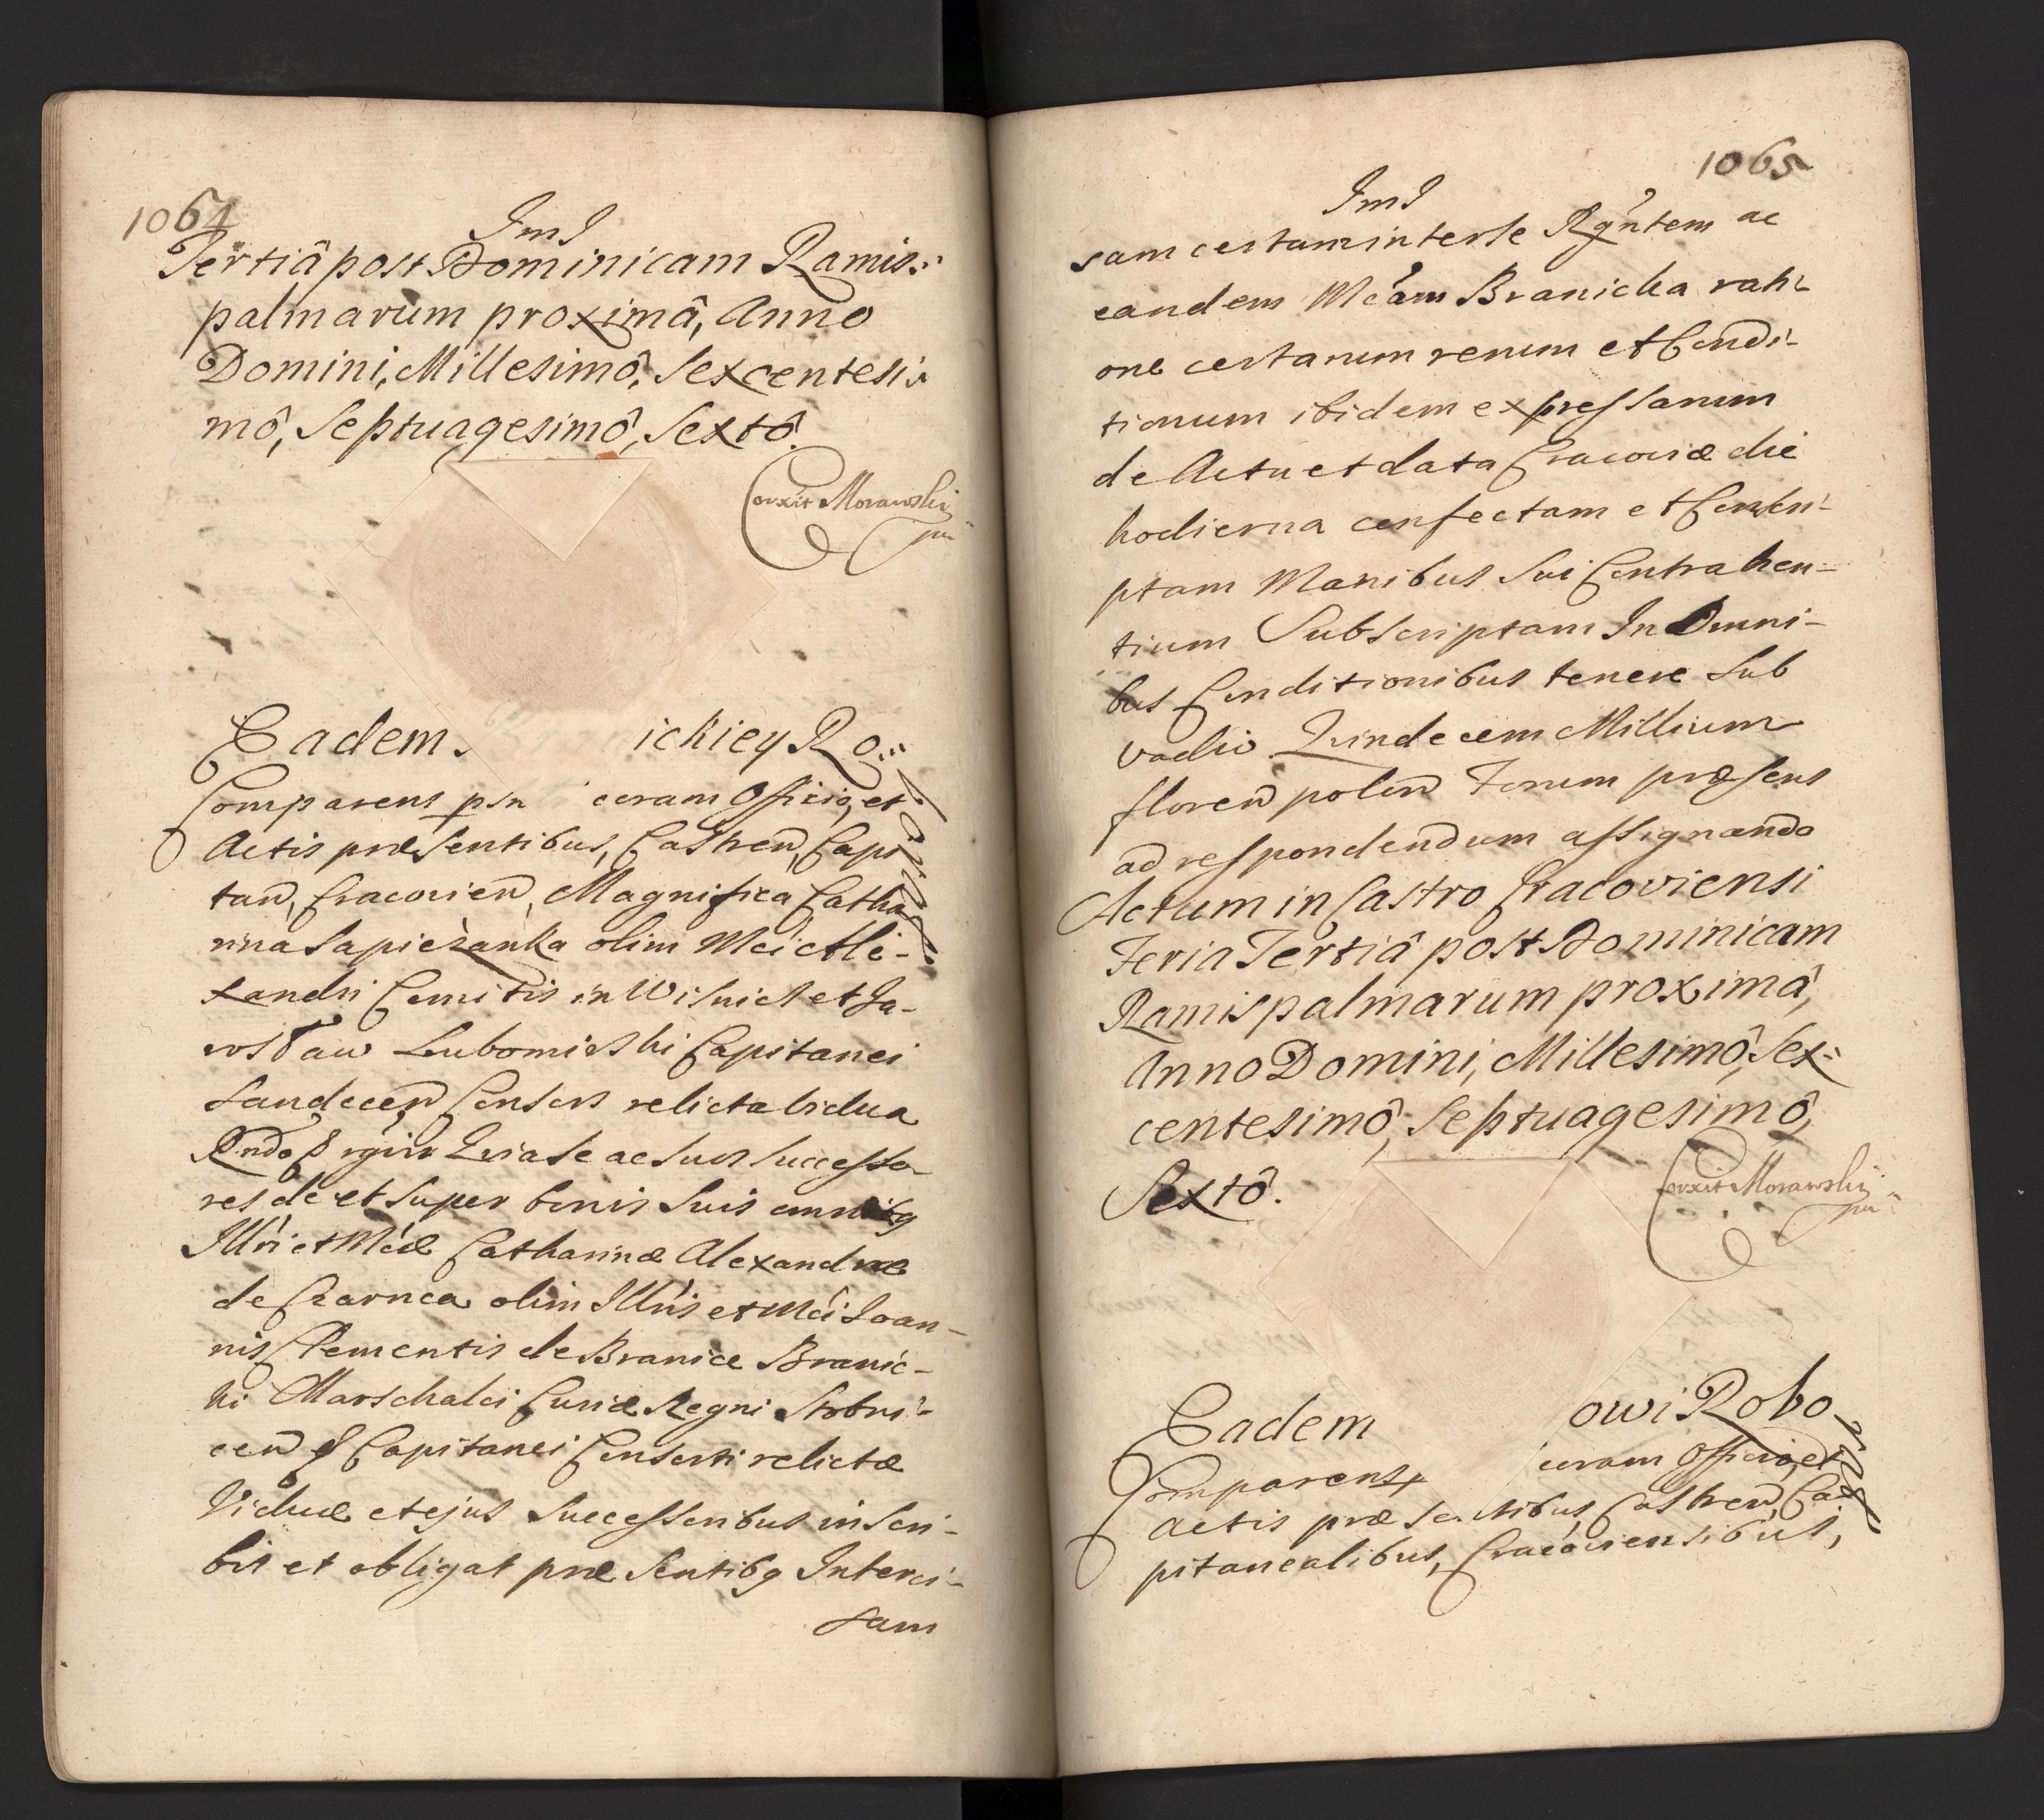 1064
Jms
Tertiâ post Dominicam Ramis:
palmarum proximâ, Anno
Domini, Millesimô, Sexcentesi:
mô, Septuagesimô, Sextô.
Corxit Morawski
Eadem. ickiey Ro:
borat.
Comparens psn coram Officio, et
Actis præsentibus, Castren, Capi
tan, Cracovien, Magnifica Catha
rina Sapieżanka olim Mci Ale-
xandri Comitis in Wisnicz et Ja-
rosław Lubomirski Capitanei
Sandecen Consors relicta vidua
Quia se ac suos successo-
res de et super bonis suis omnibq
Illri et Mcæ Catharinæ Alexandræ
de Czarnca olim Illris et Mci Joan-
nis Clementis de Branice Branic-
ki Marschalci Curiæ Regni Stobni-
cen Capitanei Consorti relictæ
Viduæ et ejus Successoribus inscri-
bit et obligat præsentibq Interci-
sam
1065
Jms
sam certam inter se Rgntem ac
eandem Mcam Branicka rati-
one certarum rerum et Condi-
tionum ibidem expressarum
de Actu et data Cracoviæ die
hodierna confectam et Conscri-
ptam Manibus sui Contrahen-
tium Subscriptam In Omni-
bus Conditionibus tenere sub
vadio Quindecem Millium
floren polon Forum præsens
ad respondendum assignando
Actum in Castro Cracoviensi
Feria Tertiâ post Dominicam
Ramispalmarum proximâ,
Anno Domini, Millesimô, Sex:
centesimô, Septuagesimô,
Sextô.
Corxit Morawski
Eadem owi Robo
rat.
Comparens coram Officio, et
Actis præsentibus, Castren, Ca
pitanealibus, Cracoviensibus,